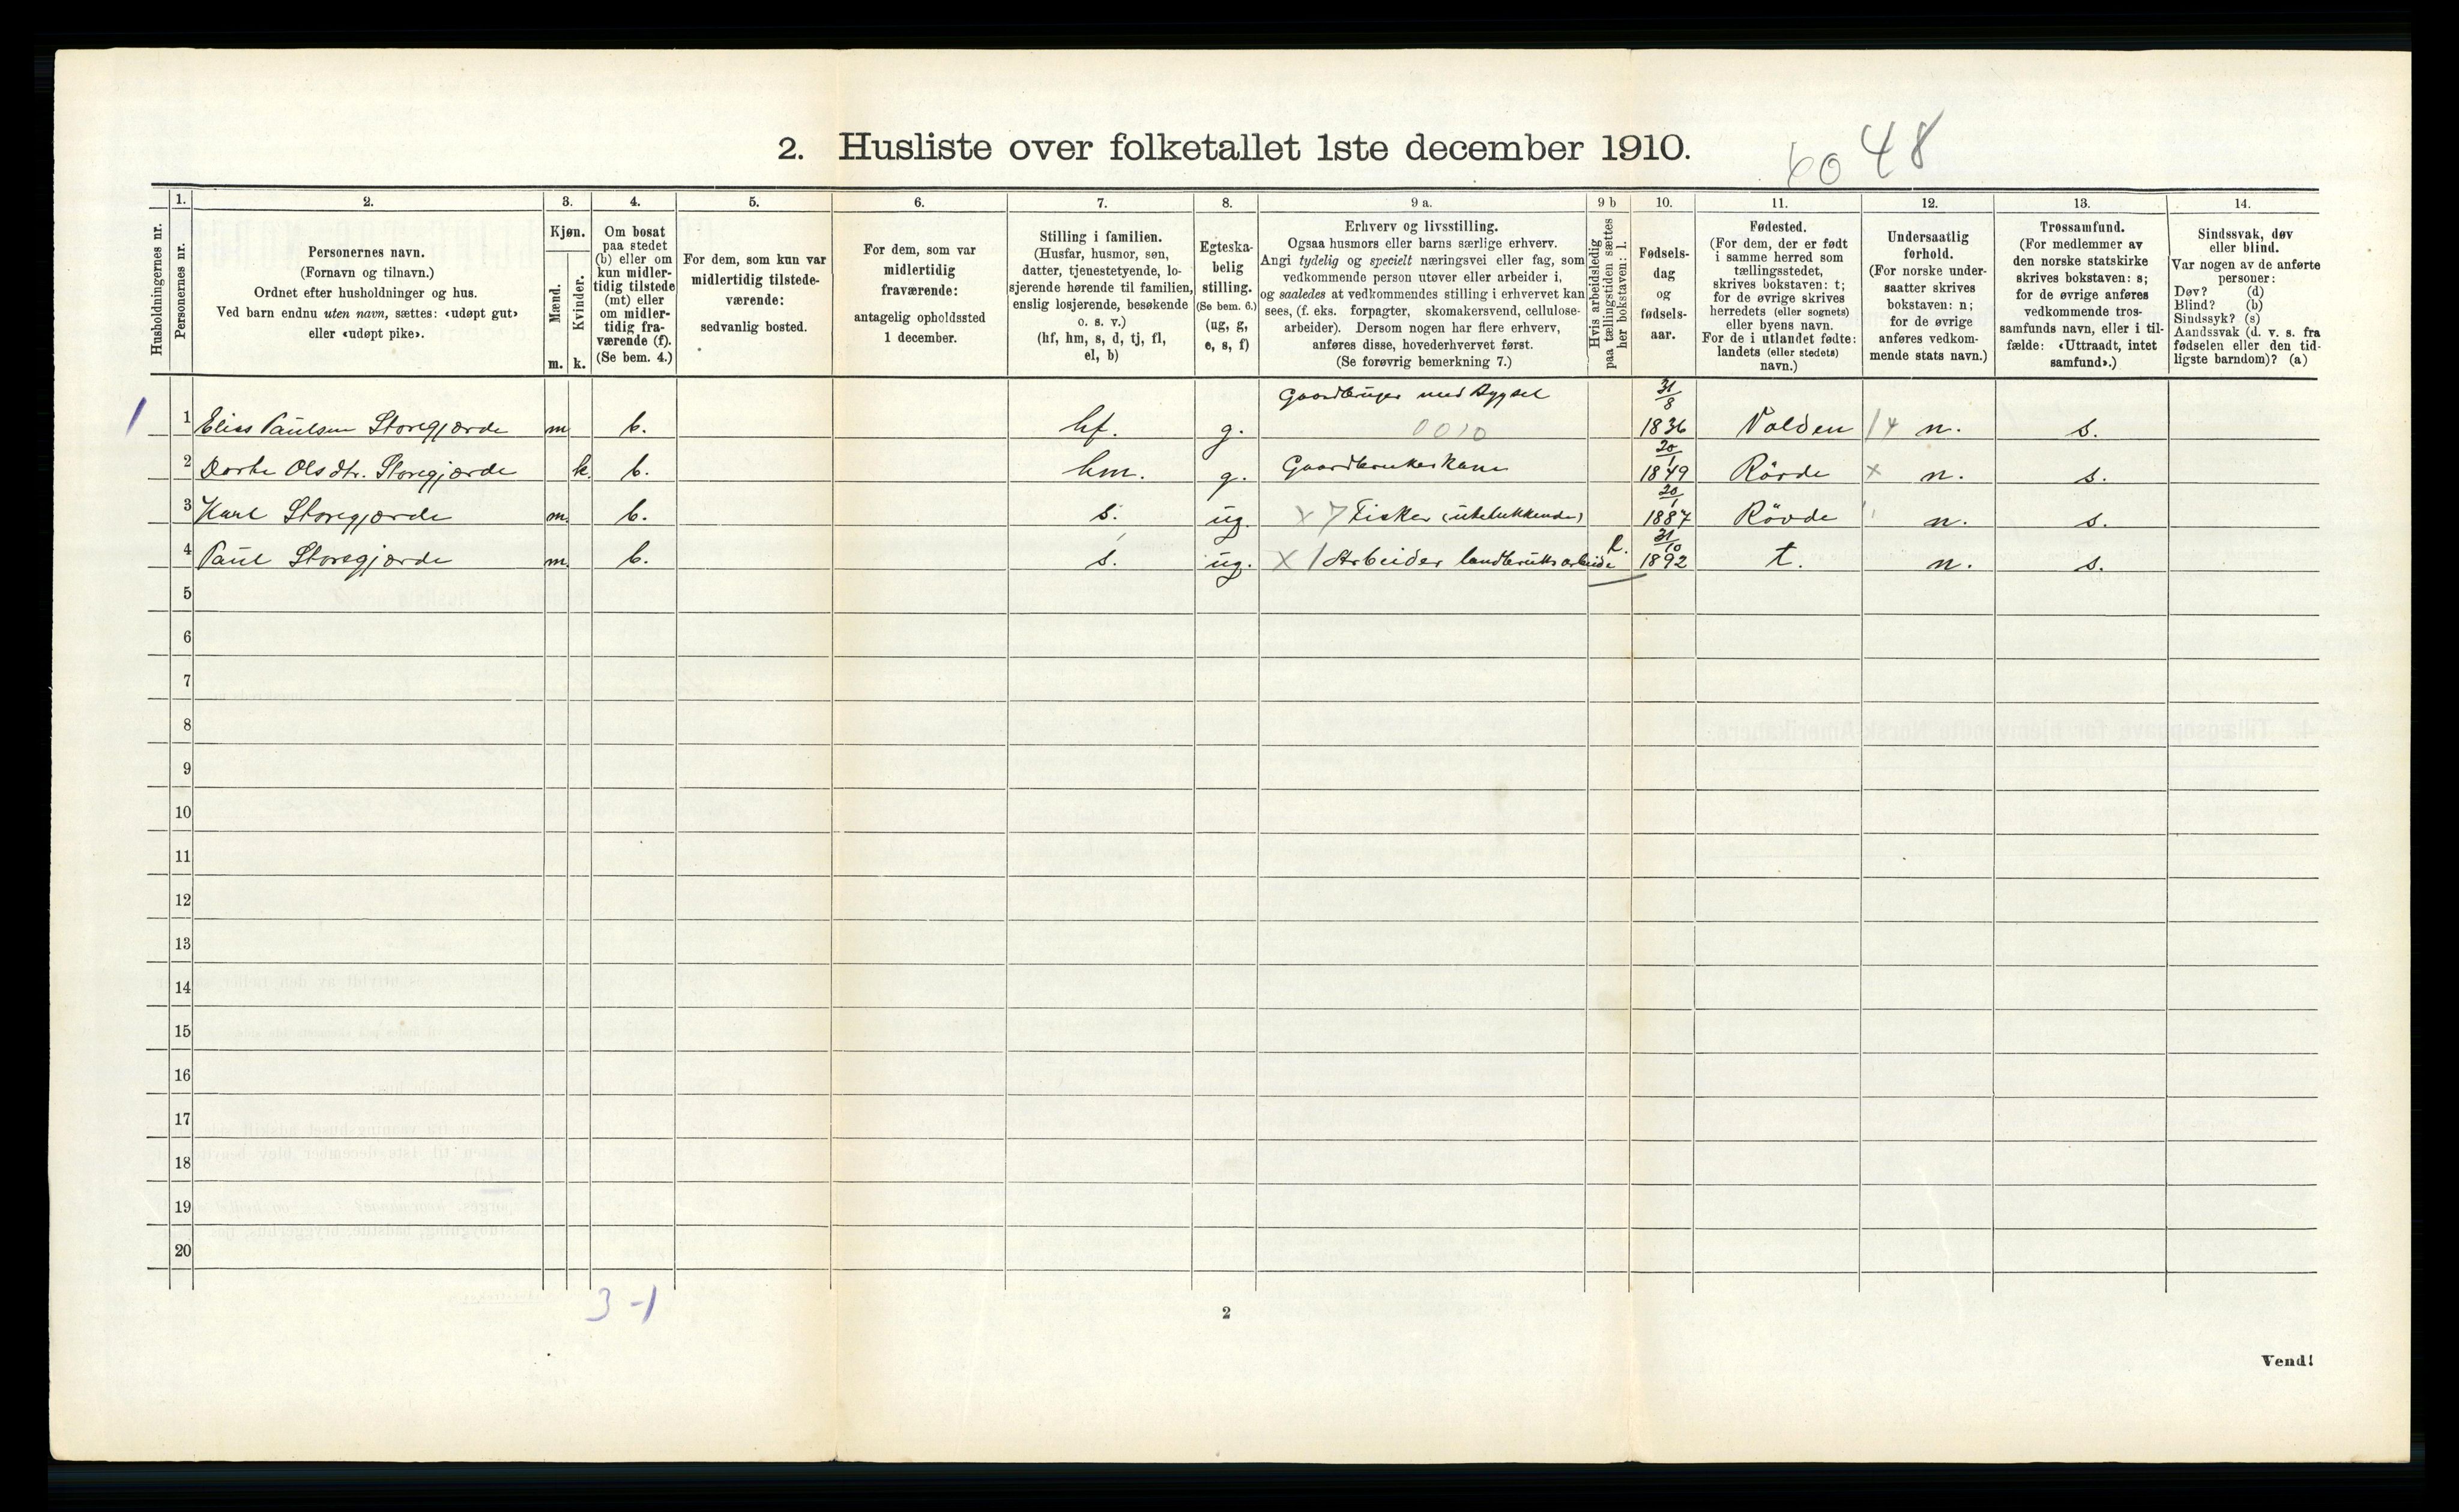 2. Husliste over folketallet 1ste december 1910.
6048
Husholdningernes nr.
1.
Personernes nr.
2.
Personernes navn.
(Fornavn og tilnavn.)
Ordnet efter husholdninger og hus.
Ved barn endnu uten navn, sættes: «udøpt gut»
eller «udøpt pike».
3.
Kjøn.
Mænd.
Kvinder.
m. k.
4.
Om bosat
paa stedet
(b) eller om
kun midler-
tidig tilstede
(mt) eller
om midler-
tidig fra-
værende (f).
(Se bem. 4.)
5.
For dem, som kun var
midlertidig tilstede-
værende:
sedvanlig bosted.
6.
For dem, som var
midlertidig
fraværende:
antagelig opholdssted
1 december.
7.
Stilling i familien.
(Husfar, husmor, søn,
datter, tjenestetyende, lo-
sjerende hørende til familien,
enslig losjerende, besøkende
o. s. v.)
(hf, hm, s, d, tj, fl,
el, b)
8.
Egteska-
belig
stilling.
(Se bem. 6.)
(ug, g,
e, s, f)
9 a.
Erhverv og livsstilling.
Ogsaa husmors eller barns særlige erhverv.
Angi tydelig og specielt næringsvei eller fag, som
vedkommende person utøver eller arbeider i,
og saaledes at vedkommendes stilling i erhvervet kan
sees, (f. eks. forpagter, skomakersvend, cellulose-
arbeider). Dersom nogen har flere erhverv,
anføres disse, hovederhvervet først.
(Se forøvrig bemerkning 7.)
9 b
Hvis arbeidsledig
paa tællingstiden sættes
her bokstaven: l.
10.
Fødsels-
dag
og
fødsels-
aar.
11.
Fødested.
(For dem, der er født
i samme herred som
tællingsstedet,
skrives bokstaven: t;
for de øvrige skrives
herredets (eller sognets)
eller byens navn.
For de i utlandet fødte:
landets (eller stedets)
navn.)
12.
Undersaatlig
forhold.
(For norske under-
saatter skrives
bokstaven: n;
for de øvrige
anføres vedkom-
mende stats navn.)
13.
Trossamfund.
(For medlemmer av
den norske statskirke
skrives bokstaven: s;
for de øvrige anføres
vedkommende tros-
samfunds navn, eller i til-
fælde: «Uttraadt, intet
samfund».)
14.
Sindssvak, døv
eller blind.
Var nogen av de anførte
personer:
Døv? (d)
Blind? (b)
Sindssyk? (s)
Aandssvak (d. v. s. fra
fødselen eller den tid-
ligste barndom)? (a)
Gaardbruger med Bygsel 31/8
1 1 Elias Paulsen Storegjærde m b. hf. g. 0010 1836 Volden 14 n. s.
20/1
2 Dorte Olsdtr. Storegjærde k. b. hm. g. Gaardbrukerkone 1849 Rövde x n. s.
20/1
3 Karl Storegjærde m. b. s. ug. x 7 Fisker (utelukkende) 1887 Rövde " n. s.
31/10
4 Paul Storegjærde m. b. s. ug. x 1 Arbeider landbruksarbeide l. 1892 t. n. s.
5
6
7
8
9
10
11
12
13
14
15
16
17
18
19
20
3-1
2
Vend!